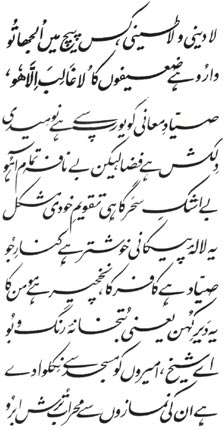 لا دینی و لاطینی، کس پیچ میں اُلجھا تُو
دارُو ہے ضعیفوں کا 'لَا غَالِبَ اِلَّا ھُوْ'
صیّادِ معانی کو یورپ سے ہے نومیدی
دلکش ہے فضا، لیکن بے نافہ تمام آہُو
بے اشکِ سحر گاہی تقویمِ خودی مشکل
یہ لالۂ پیکانی خوشتر ہے کنارِ جُو
صیّاد ہے کافر کا، نخچیر ہے مومن کا
یہ دیرِ کُہن یعنی بُتخانۂ رنگ و بُو
اے شیخ، امیروں کو مسجد سے نکلوا دے
ہے ان کی نمازوں سے محراب تُرش ابرُو